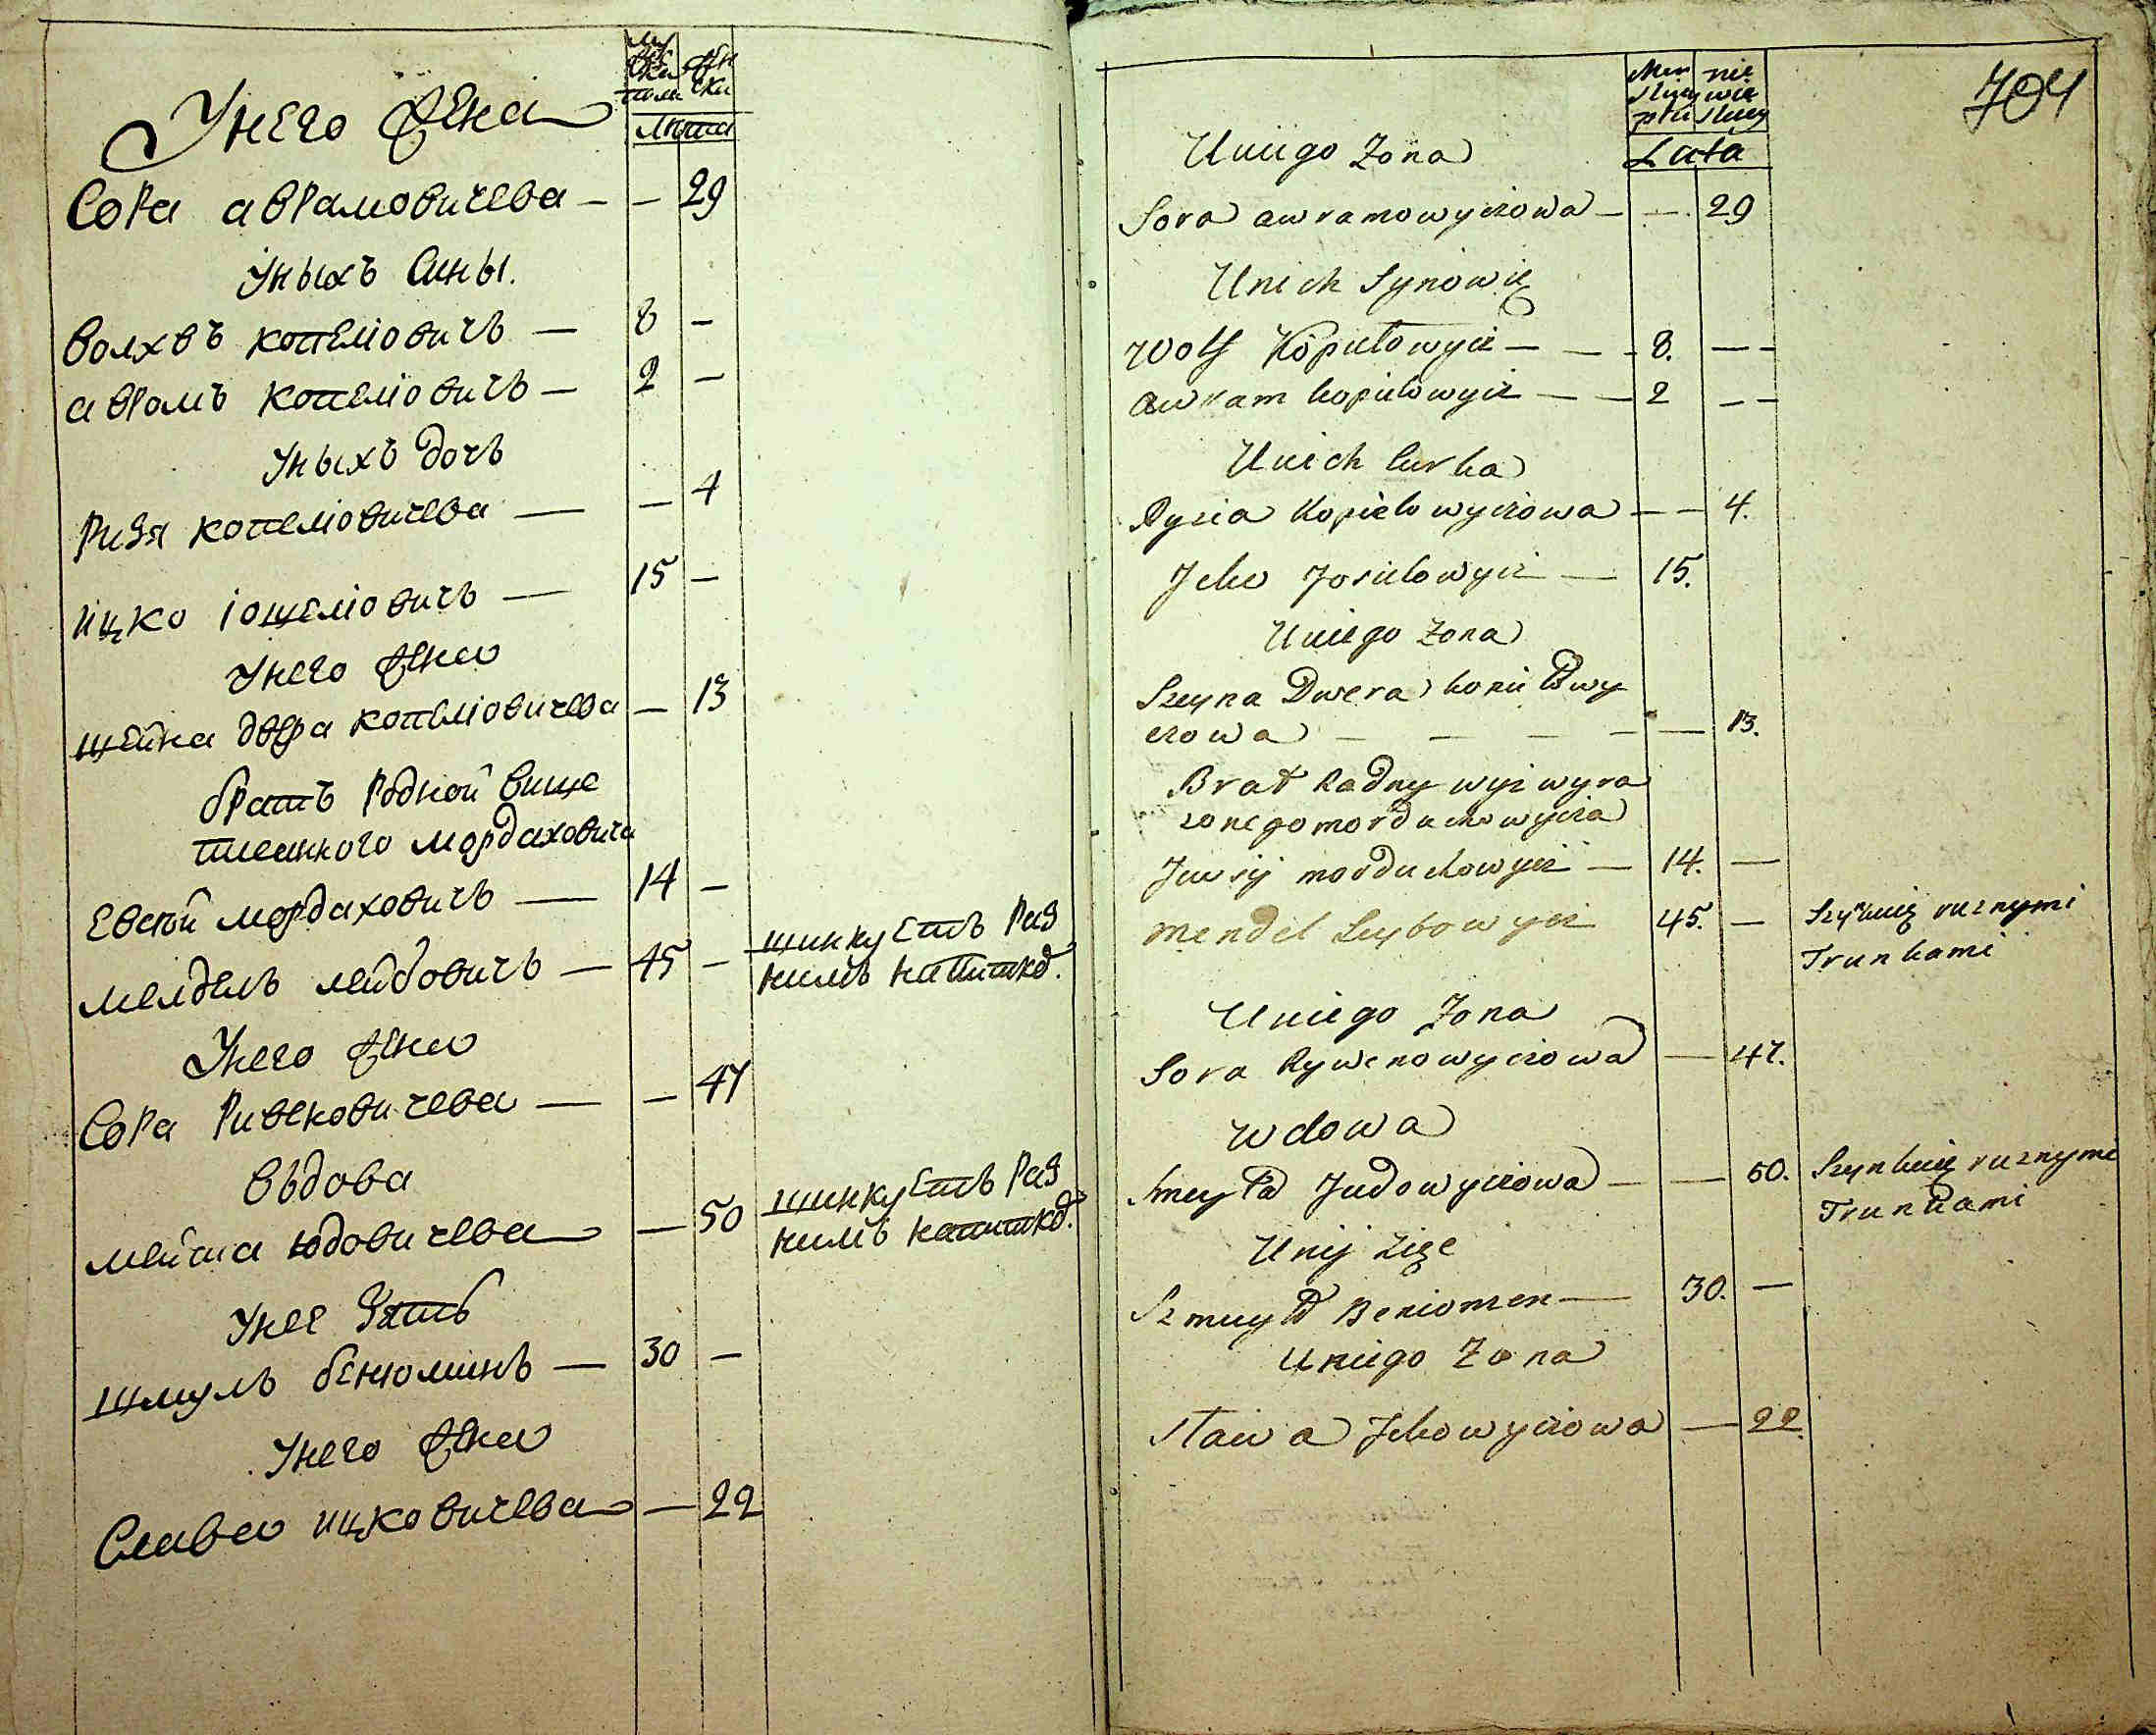 Унего жена
мужеска
полу
женски
лѣта
Сора аврамовичева — — 29
Уныхъ Сины.
волхвъ копелiовичъ — 8 —
аврамъ копелiовичъ — 2 —
Уныхъ дочъ
Ризя копелiовичева — — 4
ицко iошелiовичъ — 15 —
Унего жена
шейна двера копелiовичева — 13
братъ родной више
писанного мордаховича
Евсей мордаховичъ — 14 —
мендель лейбовичъ — 45 — шинкуетъ раз
нимъ напиткô.
Унего жена
Сора Ривеновичева — — 47
Вьдова
мейта юдовичева — 50 шинкуетъ раз
нимъ напиткô.
Унее Зять
шмуль бенюминъ — 30 —
Унего жена
Славa ицковичева — 22
704
Uniego Zona
Lata
Sora awramowyczowa — — 29
Unich Synowie
Wolf Kopielowycz — — 8. — —
awram kopielowycz — — 2 — —
Unich Curka
Ryzia Kopielowyczowa — — 4.
Icko Josielowycz — 15.
Uniego Zona
Szeyna Dwera kopielowy
czowa — — — — — 13.
Brat Radny wyz wyra
zonego morduchowycza
Jewsij morduchowycz — 14. —
Mendel Leybowycz 45. — Szynkuie ruznymi
Trunkami
Uniego Zona
Sora Rywenowyczowa — 47.
Wdowa
Smeyta Judowyczowa — — 50. Szynkuie ruznymi
Trunkami
Unij zięc
Szmuyło Beniomen — 30. —
Uniego Zona
Sława Ickowyczowa — 22.